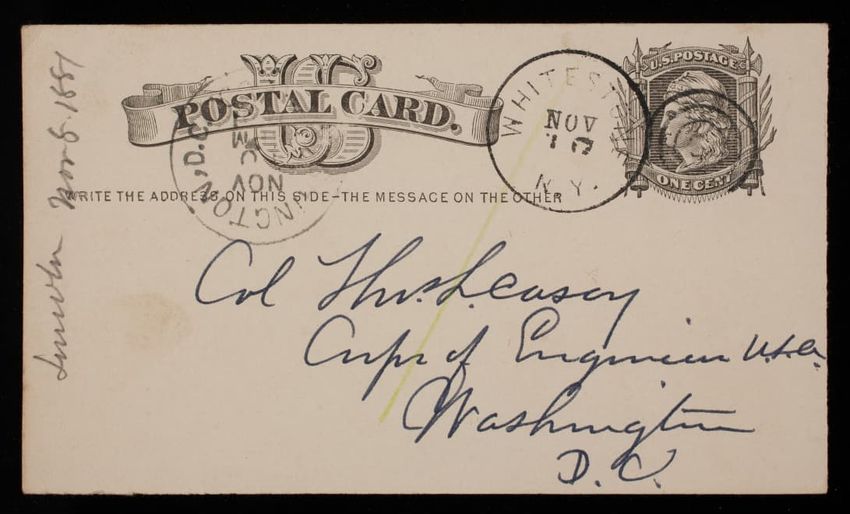 US
POSTAL CARD.
U.S. POSTAGE
ONE CENT
WHITESTONE
NOV
N.Y.
WRITE THE ADDRESS ON THIS SIDE-THE MESSAGE ON THE OTHER
INGTON, D.C.
NOV
Col Thos. L. Casey
Corps of Engineers U.S.A.
Washington
D. C.
Nov 6. 1881